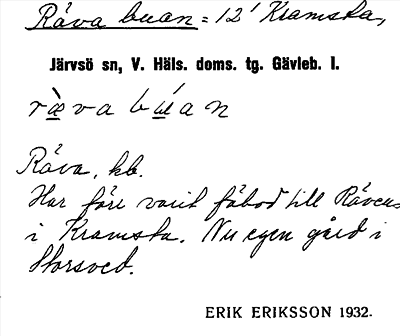 Råva buan = 12' Kramsta,
Järvsö sn, V. Häls. doms. tg. Gävleb. l.
ræ̀va bɯ́an
Råva, hb.
Har före varit fäbod till Råvens
i Kramsta. Nu egen gård i
Storsved.
ERIK ERIKSSON 1932.